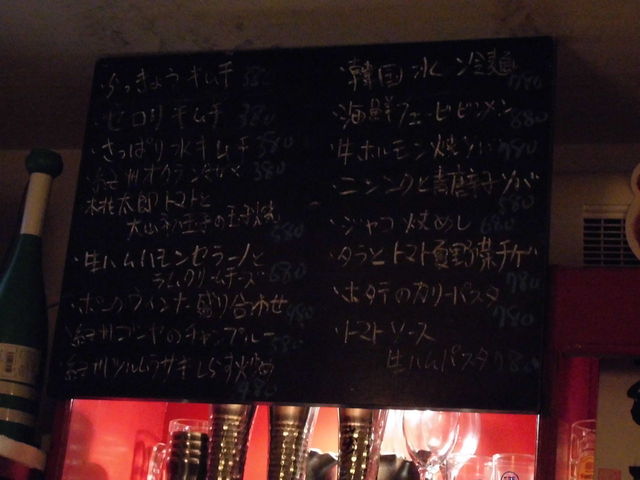 らっきょうキムチ 380
セロリキムチ 380
さっぱり水キムチ 380
紀州オクラ 380
桃太郎トマトと
大山 玉子の玉子焼 680
生ハムハモンセラーノと
ラムクリームチーズ 680
ポークウィンナー盛り合わせ 980
紀州ゴーヤのチャンプルー 580
紀州ツルムラサキしらす炒め 480
韓国氷冷麺 780
海鮮フェービビンメン 680
牛ホルモン焼 780
ニンニクと青唐辛子 580
ジャコ炒めし 680
タラとトマト夏野菜チゲ 780
ホタテのカリーパスタ 780
トマトソース
生ハムパスタ 780